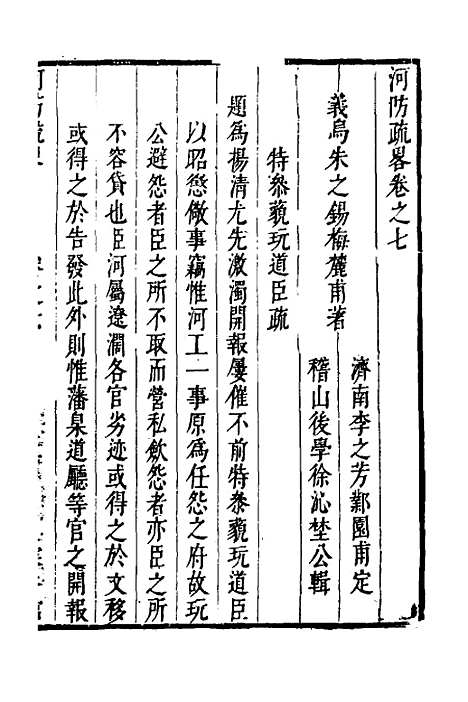 河防疏畧卷之七
濟南李之芳鄴園甫定
義烏朱之錫梅麓甫著
稽山後學徐沁埜公輯
特參藐玩道臣疏
題爲楊清尤先激濁開報屢催不前特參藐玩道臣
以昭懲儆事竊惟河工一事原爲任怨之府故玩
公避怨者臣之所不取而營私歛怨者亦臣之所
不容貸也臣河屬遼濶各官劣迹或得之於文移
或得之於告發此外則惟藩臬道廳等官之開報